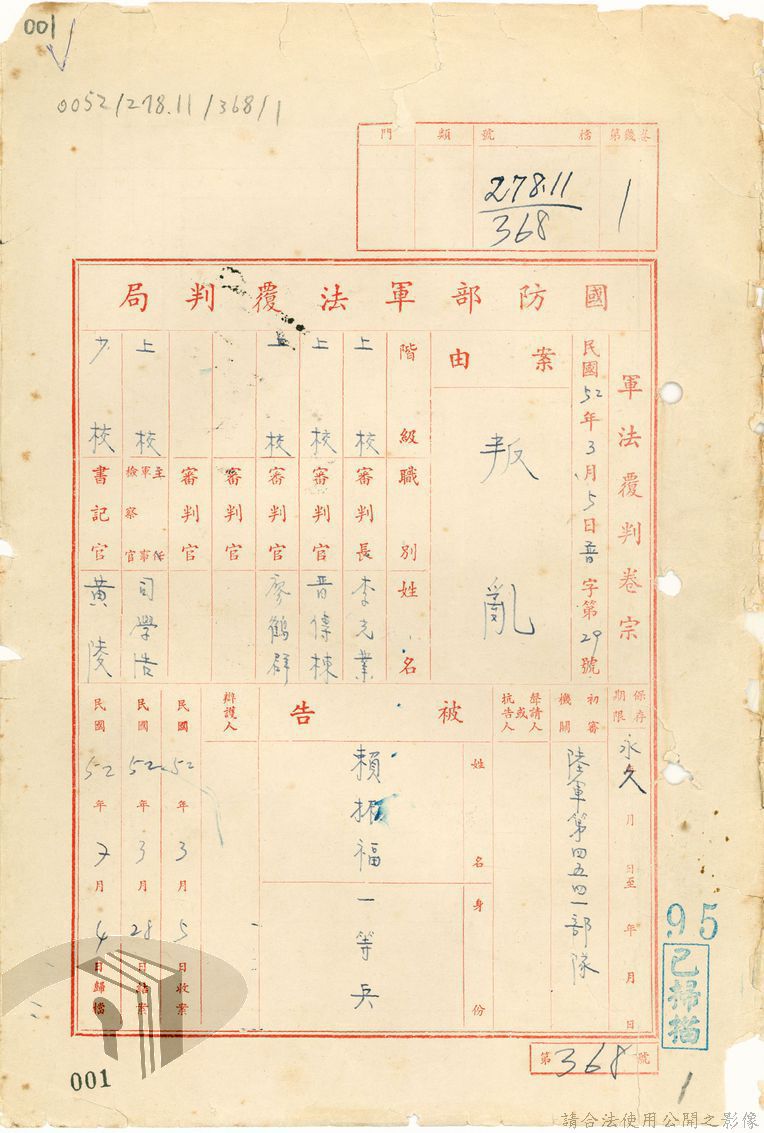 001
0052/278.11/368/1
第幾宗 1
檔號 278.11/368
類
門
國防部軍法覆判局
軍法覆判卷宗
民國52年3月5日晉字第29號
案由
叛亂
階級 職別 姓名
上校 審判長 李光業
上校 審判官 晋傳棟
上校 審判官 廖鶴群
審判官
審判官
上校 主任軍事檢察官 司學浩
少校 書記官 黃陵
保存期限 永久 年月日至年月日
初審機關 陸軍第四五四一部隊
聲請人或抗告人
被告
姓名 賴 福
身份 一等兵
辯護人
民國52年3月5日收案
民國52年3月28日結案
民國52年7月4日歸檔
第368號
95
已掃描
1
001
請合法使用公開之影像